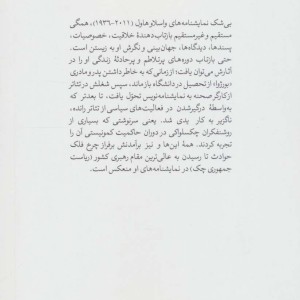 بی‌شک نمایشنامه‌های واسلاو هاول (۲۰۱۱-۱۹۳۶)، همگی
مستقیم و غیرمستقیم بازتاب‌دهندهٔ خلاقیت، خصوصیات،
پسندها، دیدگاه‌ها، جهان‌بینی و نگرش او به زیستن است.
حتی بازتاب دوره‌های پرتلاطم و پرحادثهٔ زندگی او را در
آثارش می‌توان یافت؛ از زمانی که به خاطر داشتن پدر و مادری
«بورژوا» از تحصیل در دانشگاه بازماند، سپس شغلش در تئاتر
از کارگر صحنه به نمایشنامه‌نویس تحول یافت، تا بعدتر که
به‌واسطهٔ درگیر شدن در فعالیت‌های سیاسی از تئاتر رانده،
ناگزیر به کار یدی شد. یعنی سرنوشتی که بسیاری از
روشنفکران چکسلواکی در دوران حاکمیت کمونیستی آن را
تجربه کردند. همهٔ این‌ها و نیز برآمدنش بر فراز چرخ فلک
حوادث تا رسیدن به عالی‌ترین مقام رهبری کشور (ریاست
جمهوری چک) در نمایشنامه‌های او منعکس است.